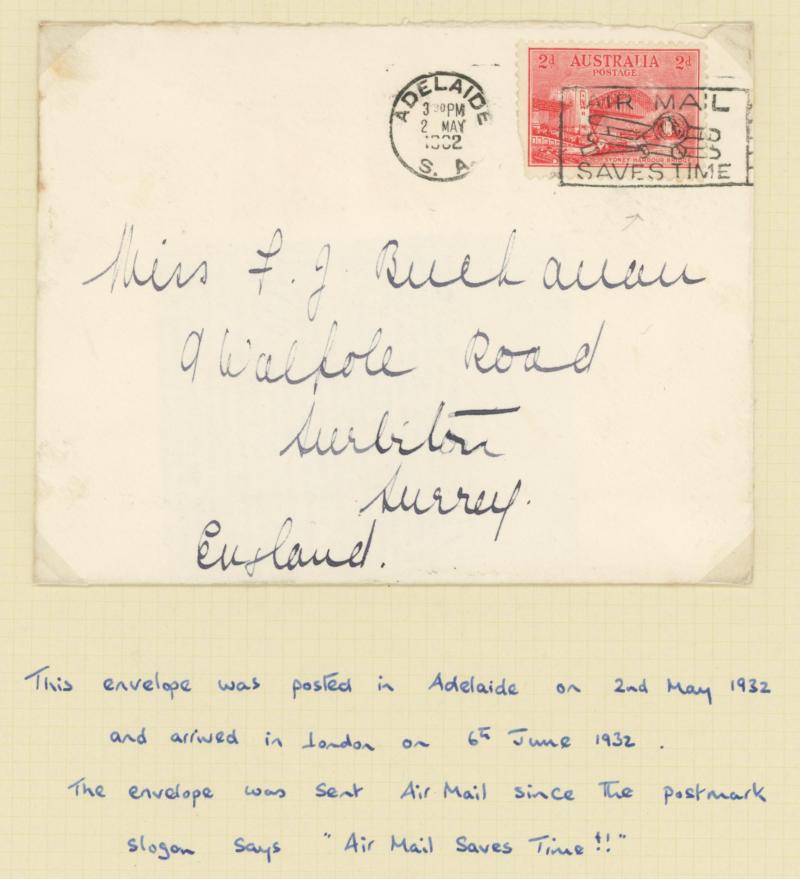 ADELAIDE
3 30 PM
2 MAY
1932
S. A.
2d AUSTRALIA 2d
POSTAGE
SYDNEY HARBOUR BRIDGE
AIR MAIL
SAVES TIME
Miss F. J. Buchanan
9 Walpole Road
Surbiton
Surrey.
England.
This envelope was posted in Adelaide on 2nd May 1932
and arrived in London on 6th June 1932.
The envelope was sent Air Mail since the postmark
slogan says "Air Mail Saves Time!!"